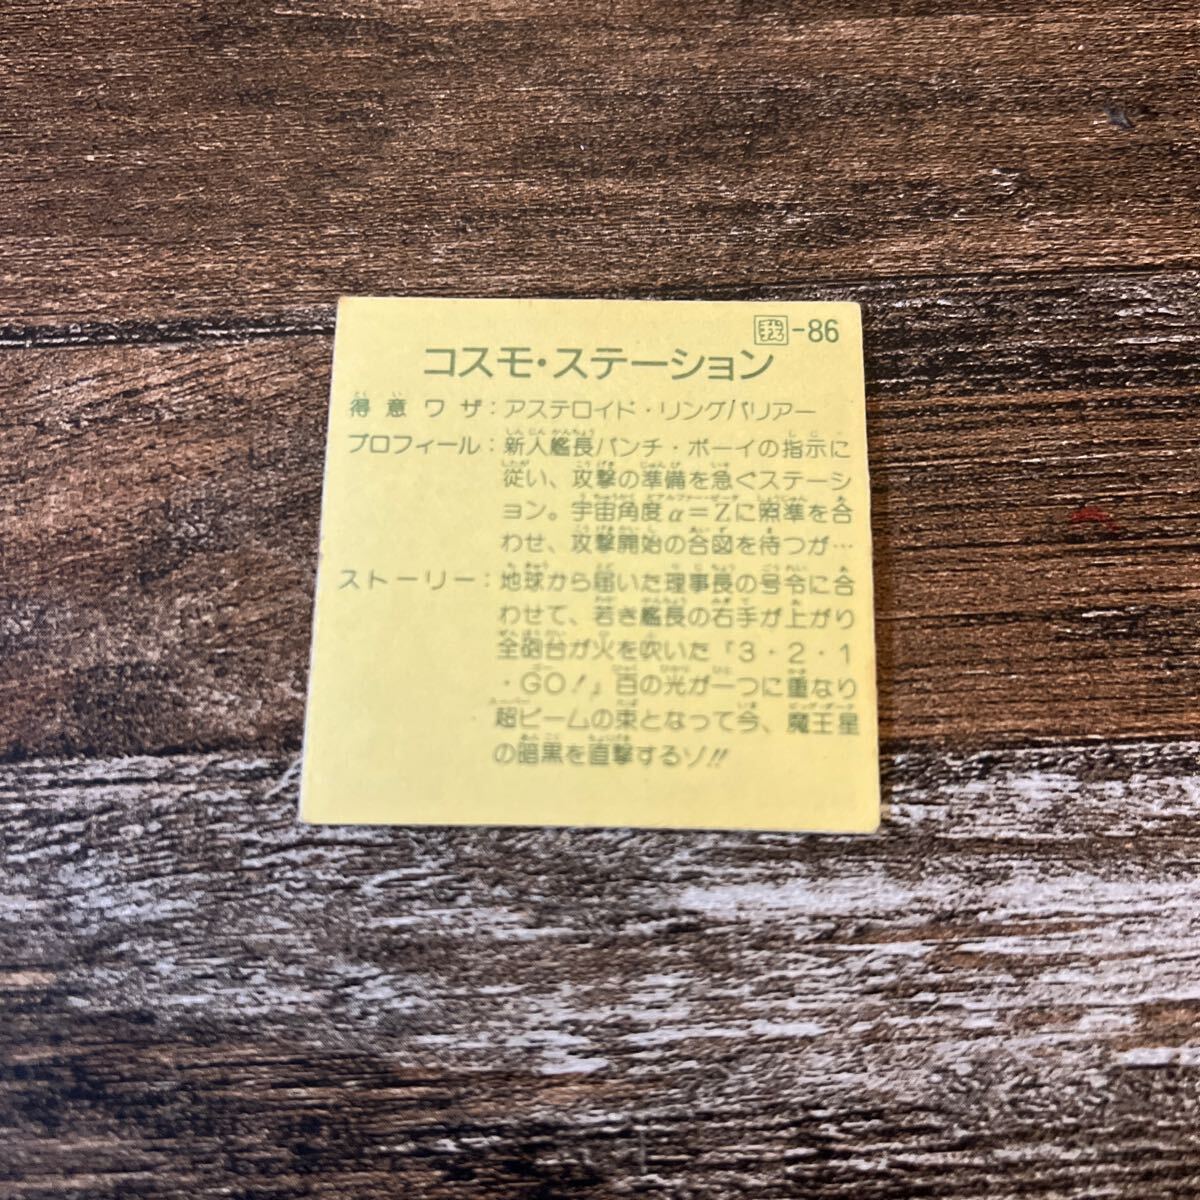 我-86
コスモ・ステーション
得意ワザ：アステロイド・リングバリアー
プロフィール：新人艦長パンチ・ボーイの指示に
従い、攻撃の準備を急ぐステーシ
ョン。宇宙角度α=Zに照準を合
わせ、攻撃開始の合図を待つが…
ストーリー：地球から届いた理事長の号令に合
わせて、若き艦長の右手が上がり
全砲台が火を吹いた「3・2・1
・GO!」百の光が一つに重なり
超ビームの束となって今、魔王星
の暗黒を直撃するゾ!!